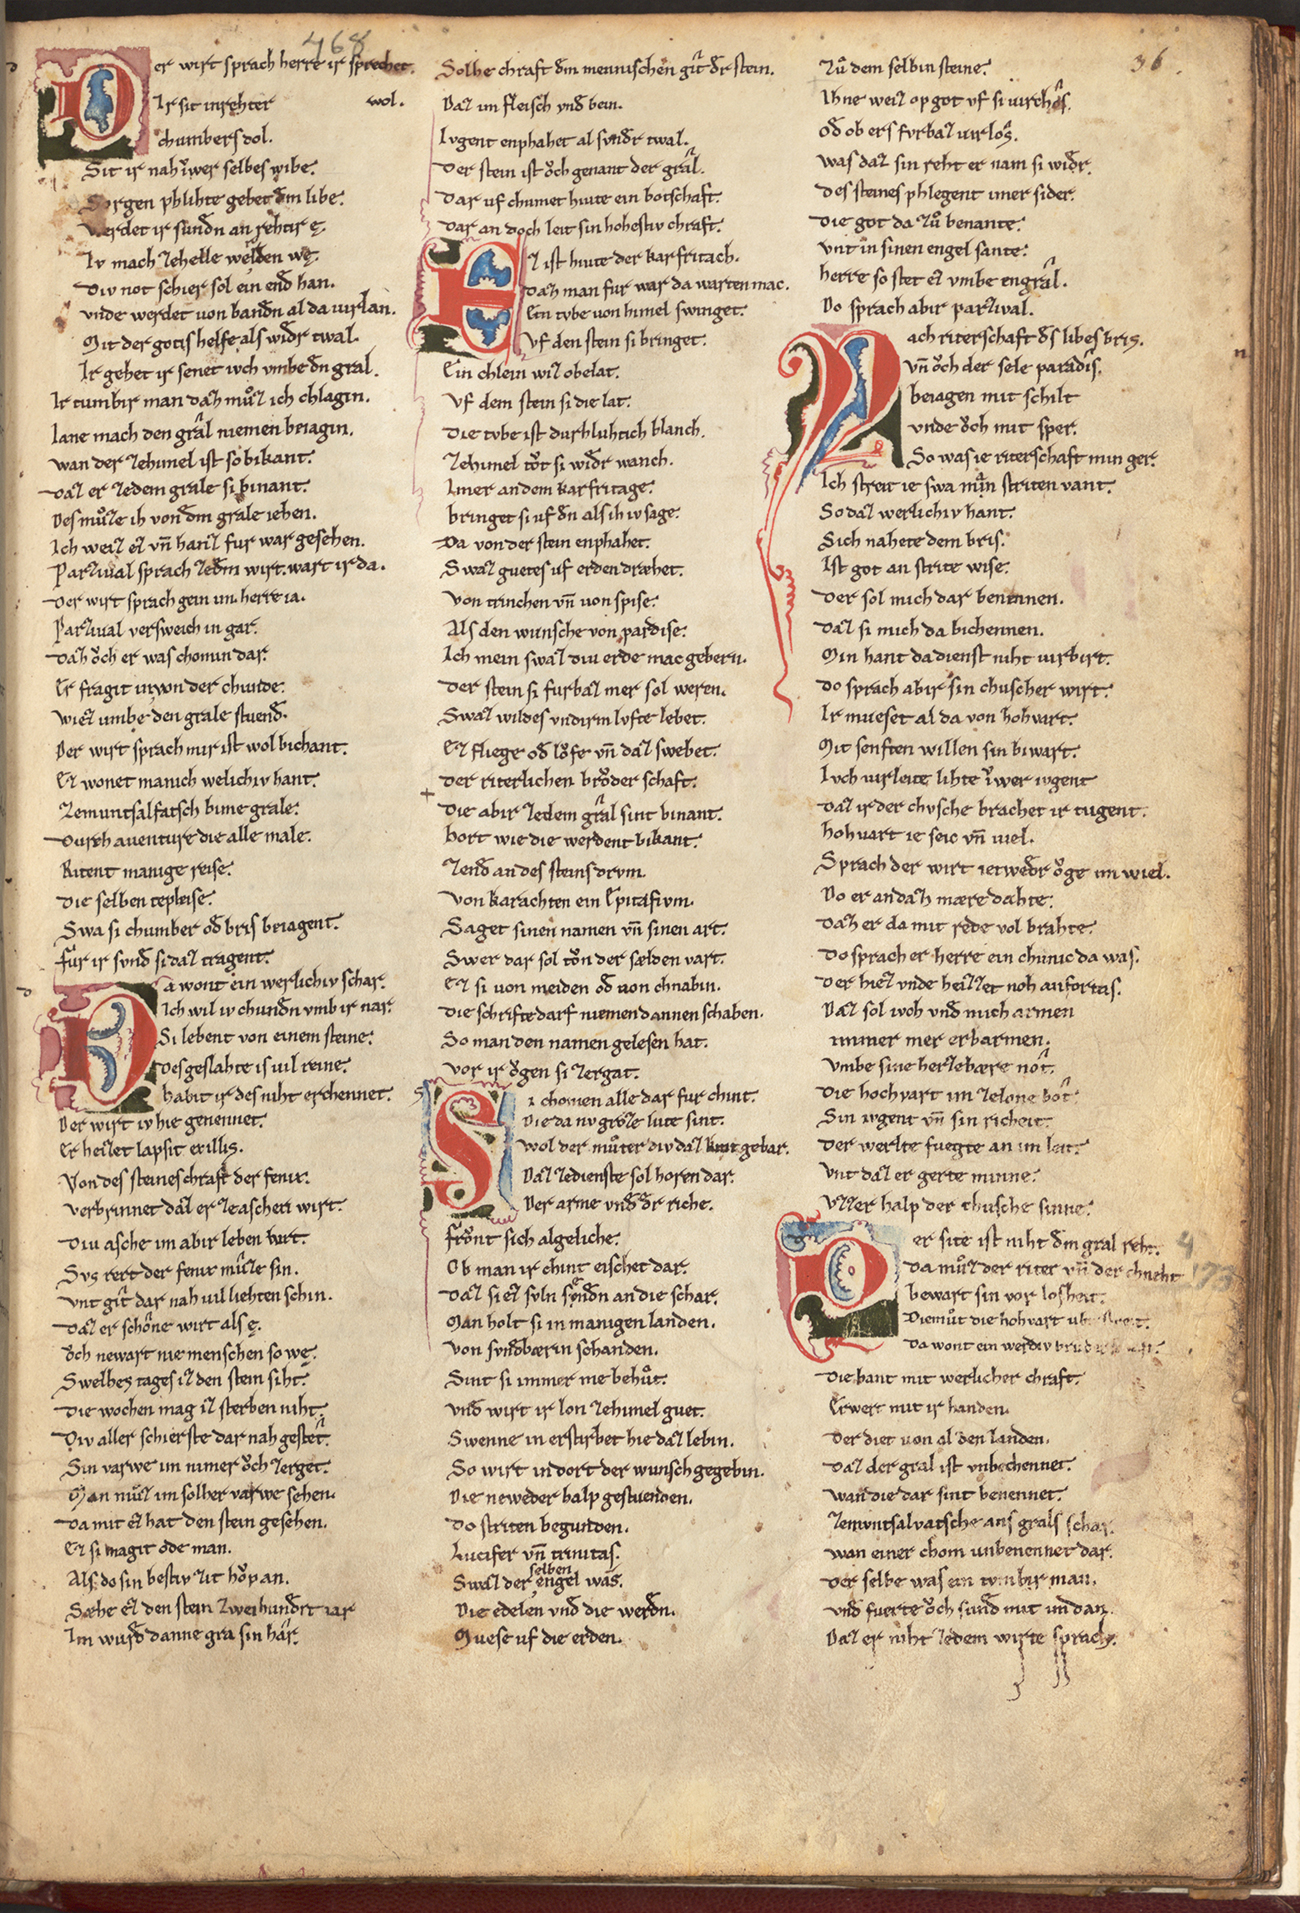 468
36.
Der wirt sprach herre ir sprechet
wol.
Ir sit inrehter
chumbers dol.
Sit ir nah iwer selbes wibe.
Sorgen phlihte gebet dem libe.
Werdet ir fundn an rehtir e.
Iv mach zehelle werden we.
Div not schier sol ein end han.
vnde werdet von bandn al da virlan.
Mit der gotis helfe als widr twal.
Ir gehet ir senet iuch vmbe dn gral.
Ir tumbir man daz muoz ich chlagin.
Iane mach den grâl niemen beiagin.
wan der zehimel ist so bikant.
Daz er zedem grale si binant.
Des muoze ih von dm grale iehen.
Ich weiz ez vn̄ hanz fur war gesehen.
Parzival sprach zedm wirt. wart ir da.
Der wirt sprach gein im. herre ia.
Parzival versweich in gar.
Daz och er was chomin dar.
Er fragit in von der chunde.
wiez umbe den grale stuend.
Der wirt sprach mir ist wol bichant.
Ez wonet manich welichiv hant.
Zemuntsalfatsch bime grale.
Durch auenture die alle male.
Ritent manige reise.
Die selben tepleise.
Swa si chumber od bris beiagent.
fur ir svnd si daz tragent.
Da wont ein werlichiv schar.
Ich wil iv chundn vmb ir nar.
Si lebent von einem steine.
Des geslahte is vil reine.
habit ir des niht erchennet.
Der wirt iv hie genennet.
Er heizet lapsit exillis.
Von des steines chraft der fenix.
verbrinnet daz er zeaschen wirt.
Diu asche im abir leben birt.
Svs rert der fenix mûze sin.
vnt git dar nah vil liehten schin.
Daz er schône wirt als e.
ôch newart nie menschen so we.
Swelhes tages iz den stein siht.
Die wochen mag iz sterben niht.
Div aller schierste dar nah gestet.
Sin varwe im nimer ôch zerget.
Man muoz im solher varwe iehen.
Da mit ez hat den stein gesehen.
Ez si magit ode man.
Als do sin bestiv zit hôp an.
Sæhe ez den stein zweihundrt iar
Im wurd danne gra sin hâr.
Solhe chraft dm mennischen git dr stein.
Daz im fleisch vnd bein.
Ivgent enphahet al svndr twal.
Der stein ist ôch genant der grâl.
Dar uf chumet hiute ein botschaft.
Dar an doch leit sin hohestiv chraft.
Ez ist hiute der karfritach.
Daz man fur war da warten mac.
Ein tvbe von himel swinget.
Vf den stein si bringet.
Ein chlein wiz obelat.
Vf dem stein si die lat.
Die tvbe ist durhluhtich blanch.
Zehimel tôt si widr wanch.
Imer an dem karfritage.
bringet si uf dn als ih iv sage.
Da von der stein enphahet.
Swaz guetes uf erden dræhet.
Von trinchen vn̄ von spise.
Als den wunsche von pardise.
Ich mein swaz diu erde mac gebern.
Der stein si furbaz mer sol weren.
Swaz wildes vndirm lvfte lebet.
Ez fliege od lôfe vn̄ daz swebet.
Der riterlichen brôder schaft.
Die abir zedem grâl sint binant.
hort wie die werdent bikant.
Zend an des steins drvm
von karachten ein Epitafivm.
Saget sinen namen vn̄ sinen art.
Swer dar sol tôn der sælden vart.
Ez si von meiden od von chnabin.
Die schrifte darf niemen dannen schaben.
So man den namen gelesen hat.
vor ir ôgen si zergat.
Si chomen alle dar fur chint.
Die da nv groze lute sint.
wol der muoter div daz kint gebar.
Daz zedienste sol horen dar.
Der arme vnd dr riche.
frôut sich algeliche.
Ob man ir chint eischet dar.
Daz si ez svln sendn an die schar.
Man holt si in manigen landen.
von svndbærin schanden.
Sint si immer me behuot.
vnd wirt ir lon zehimel guet.
Swenne in erstirbet hie daz lebin.
So wirt in dort der wunsch gegebin.
Die neweder halp gestuenden.
Do striten begunden.
Lucifer vn̄ trinitas.
Swaz der selben engel was.
Die edelen vnd die werdn.
Muese uf die erden.
Zuo dem selbin steine.
Ihne weiz op got vf si virchôs.
od ob ers fvrbaz virlôs.
was daz sin reht er nam si widr.
Des steines phlegent imer sider.
Die got da zuo benante.
vnt in sinen engel sante.
herre so stet ez vmbe engrâl.
Do sprach abir parzival.
Mach riterschaft ds libes bris.
vn̄ ôch der sele paradîs.
beiagen mit schilt
vnde ôch mit sper.
So was ie riterschaft min ger.
Ich streit ie swa man striten vant.
So daz werlichiv hant.
Sich nahete dem bris.
Ist got an strite wise.
Der sol mich dar benennen.
Daz si mich da bichennen.
Min hant da dienst niht virbirt.
Do sprach abir sin chuscher wirt.
Ir mueset al da von hohvart.
Mit senften willen sin biwart.
Ivch virleite lihte iwer ivgent
Daz ir der chvsche brachet ir tugent.
hohvart ie seic vn̄ viel.
Sprach der wirt ietwedr ôge im wiel.
Do er an daz mære dahte.
Daz er da mit rede vol brahte.
Do sprach er herre ein chunic da was.
Der hiez vnde heizzet noh anfortas.
Daz sol iuch vnd mich armen
immer mer erbarmen.
vmbe sine herzebære nôt.
Die hochvart im zelone bôt.
Sin ivgent vn̄ sin richeit.
Der werlte fuegte an im leit.
vnt daz er gerte minne.
vzzer halp der chusche sinne.
Der site ist niht dm gral reht.
Da muoz der riter vn̄ der chneht
bewart sin vor losheit.
Diemuot die hohvart
Da wont ein werdiv
Die bant mit werlicher chraft.
Erwert mit ir handen.
Der diet von al den landen.
Daz der gral ist vnbechennet.
wan die dar sint benennet.
Zemvntsalvatsche ans grals schar.
wan einer chom unbenennet dar.
Der selbe was ein tvmbir man.
vnd fuerte ôch sund mit im dan.
Daz er niht zedem wirte sprach.